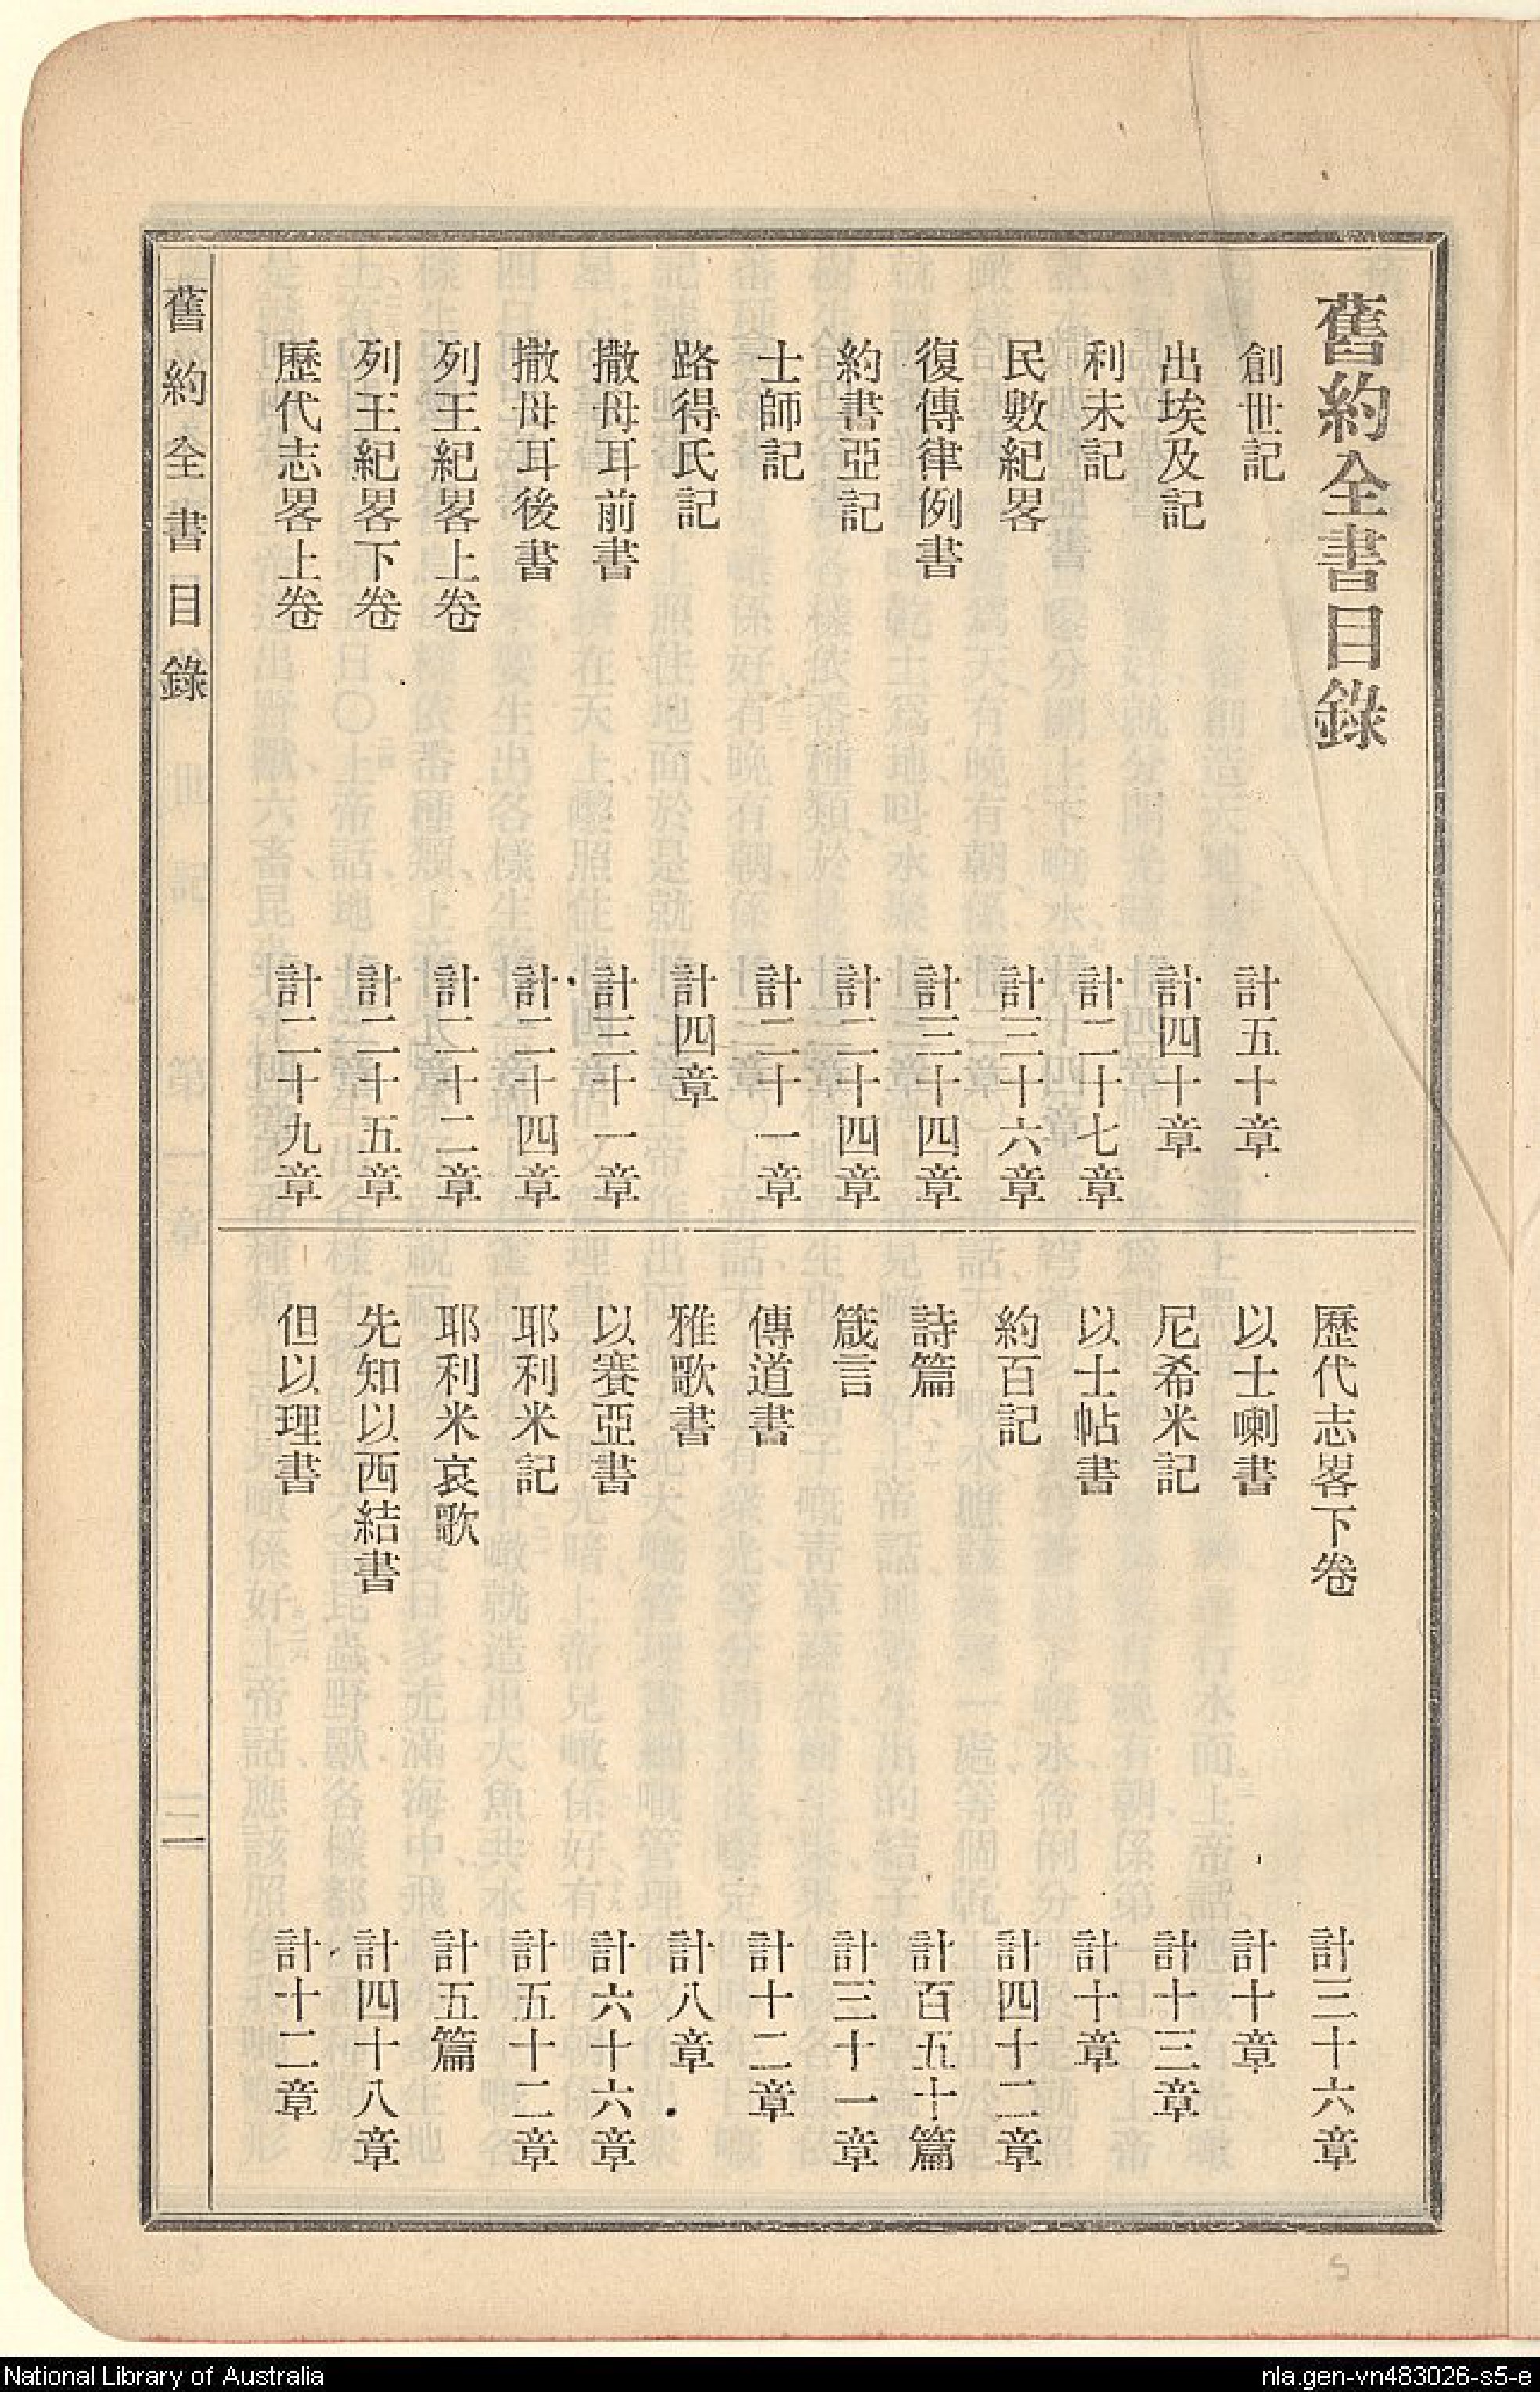 舊約全書目錄
創世記 計五十章
出埃及記 計四十章
利未記 計二十七章
民數紀畧 計三十六章
復傳律例書 計三十四章
約書亞記 計二十四章
士師記 計二十一章
路得氏記 計四章
撒母耳前書 計三十一章
撒母耳後書 計二十四章
列王紀畧上卷 計二十二章
列王紀畧下卷 計二十五章
歷代志畧上卷 計二十九章
歷代志畧下卷 計三十六章
以士喇書 計十章
尼希米記 計十三章
以士帖書 計十章
約百記 計四十二章
詩篇 計百五十篇
箴言 計三十一章
傳道書 計十二章
雅歌書 計八章
以賽亞書 計六十六章
耶利米記 計五十二章
耶利米哀歌 計五篇
先知以西結書 計四十八章
但以理書 計十二章
舊約全書目錄
5
National Library of Australia
nla.gen-vn483026-s5-e